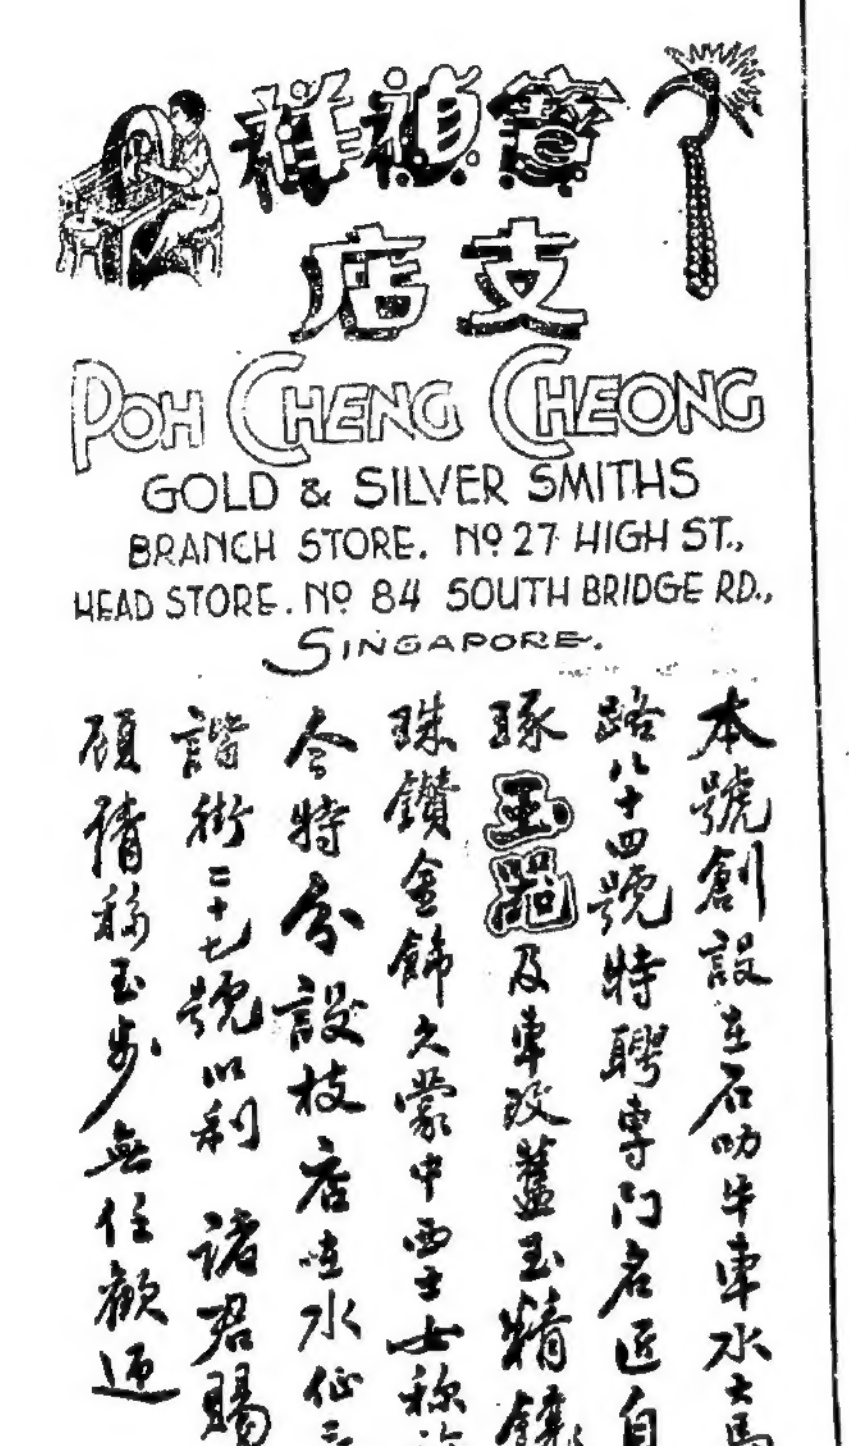 寶禎祥
支店
POH CHENG CHEONG
GOLD & SILVER SMITHS
BRANCH STORE. Nº 27 HIGH ST.,
HEAD STORE. Nº 84 SOUTH BRIDGE RD.,
SINGAPORE.
本號創設在石叻牛車水大馬
路八十四號特聘專門名匠自
琢玉器及車改舊玉精鑲
珠鑽金飾久蒙中西士女称
今特分設枝店在水仙三
諧街二十七號以利 諸君賜
顧倩移玉步無任歡迎